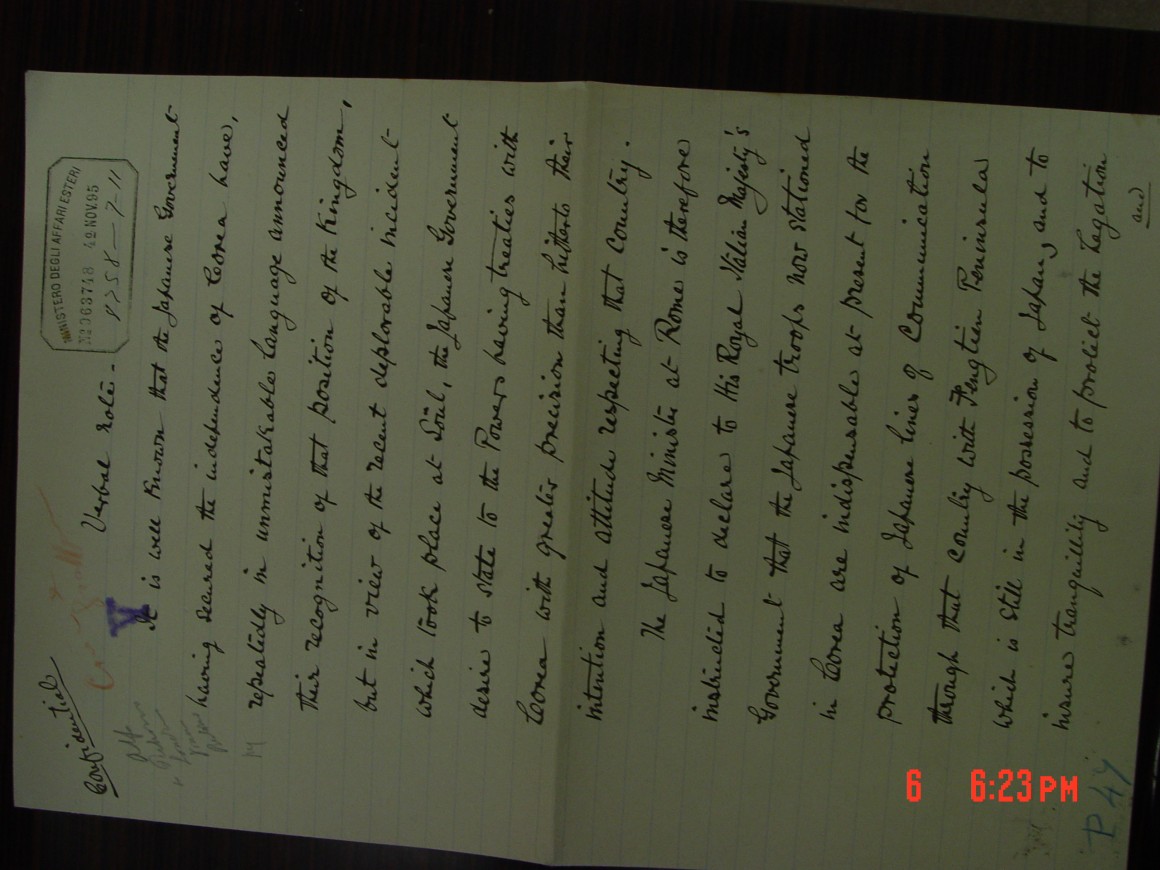 Confidential
MINISTERO DEGLI AFFARI ESTERI
Nº 063748 42 NOV.95
Verbal note -
It is well known that the Japanese Government
having secured the independence of Corea have,
repeatedly in unmistakable language announced
their recognition of that position of the Kingdom,
but in view of the recent deplorable incident
which took place at Söul, the Japanese Government
desire to state to the Powers having treaties with
Corea with greater precision than hitherto their
intention and attitude respecting that Country.
The Japanese Minister at Rome is therefore
instructed to declare to His Royal Italian Majesty's
Government that the Japanese troops now stationed
in Corea are indispensable at present for the
protection of Japanese lines of Communication
through that country with Fengtien Peninsula
which is still in the possession of Japan, and to
insure tranquility and to protect the Legation
and
P 47
6 6:23 PM